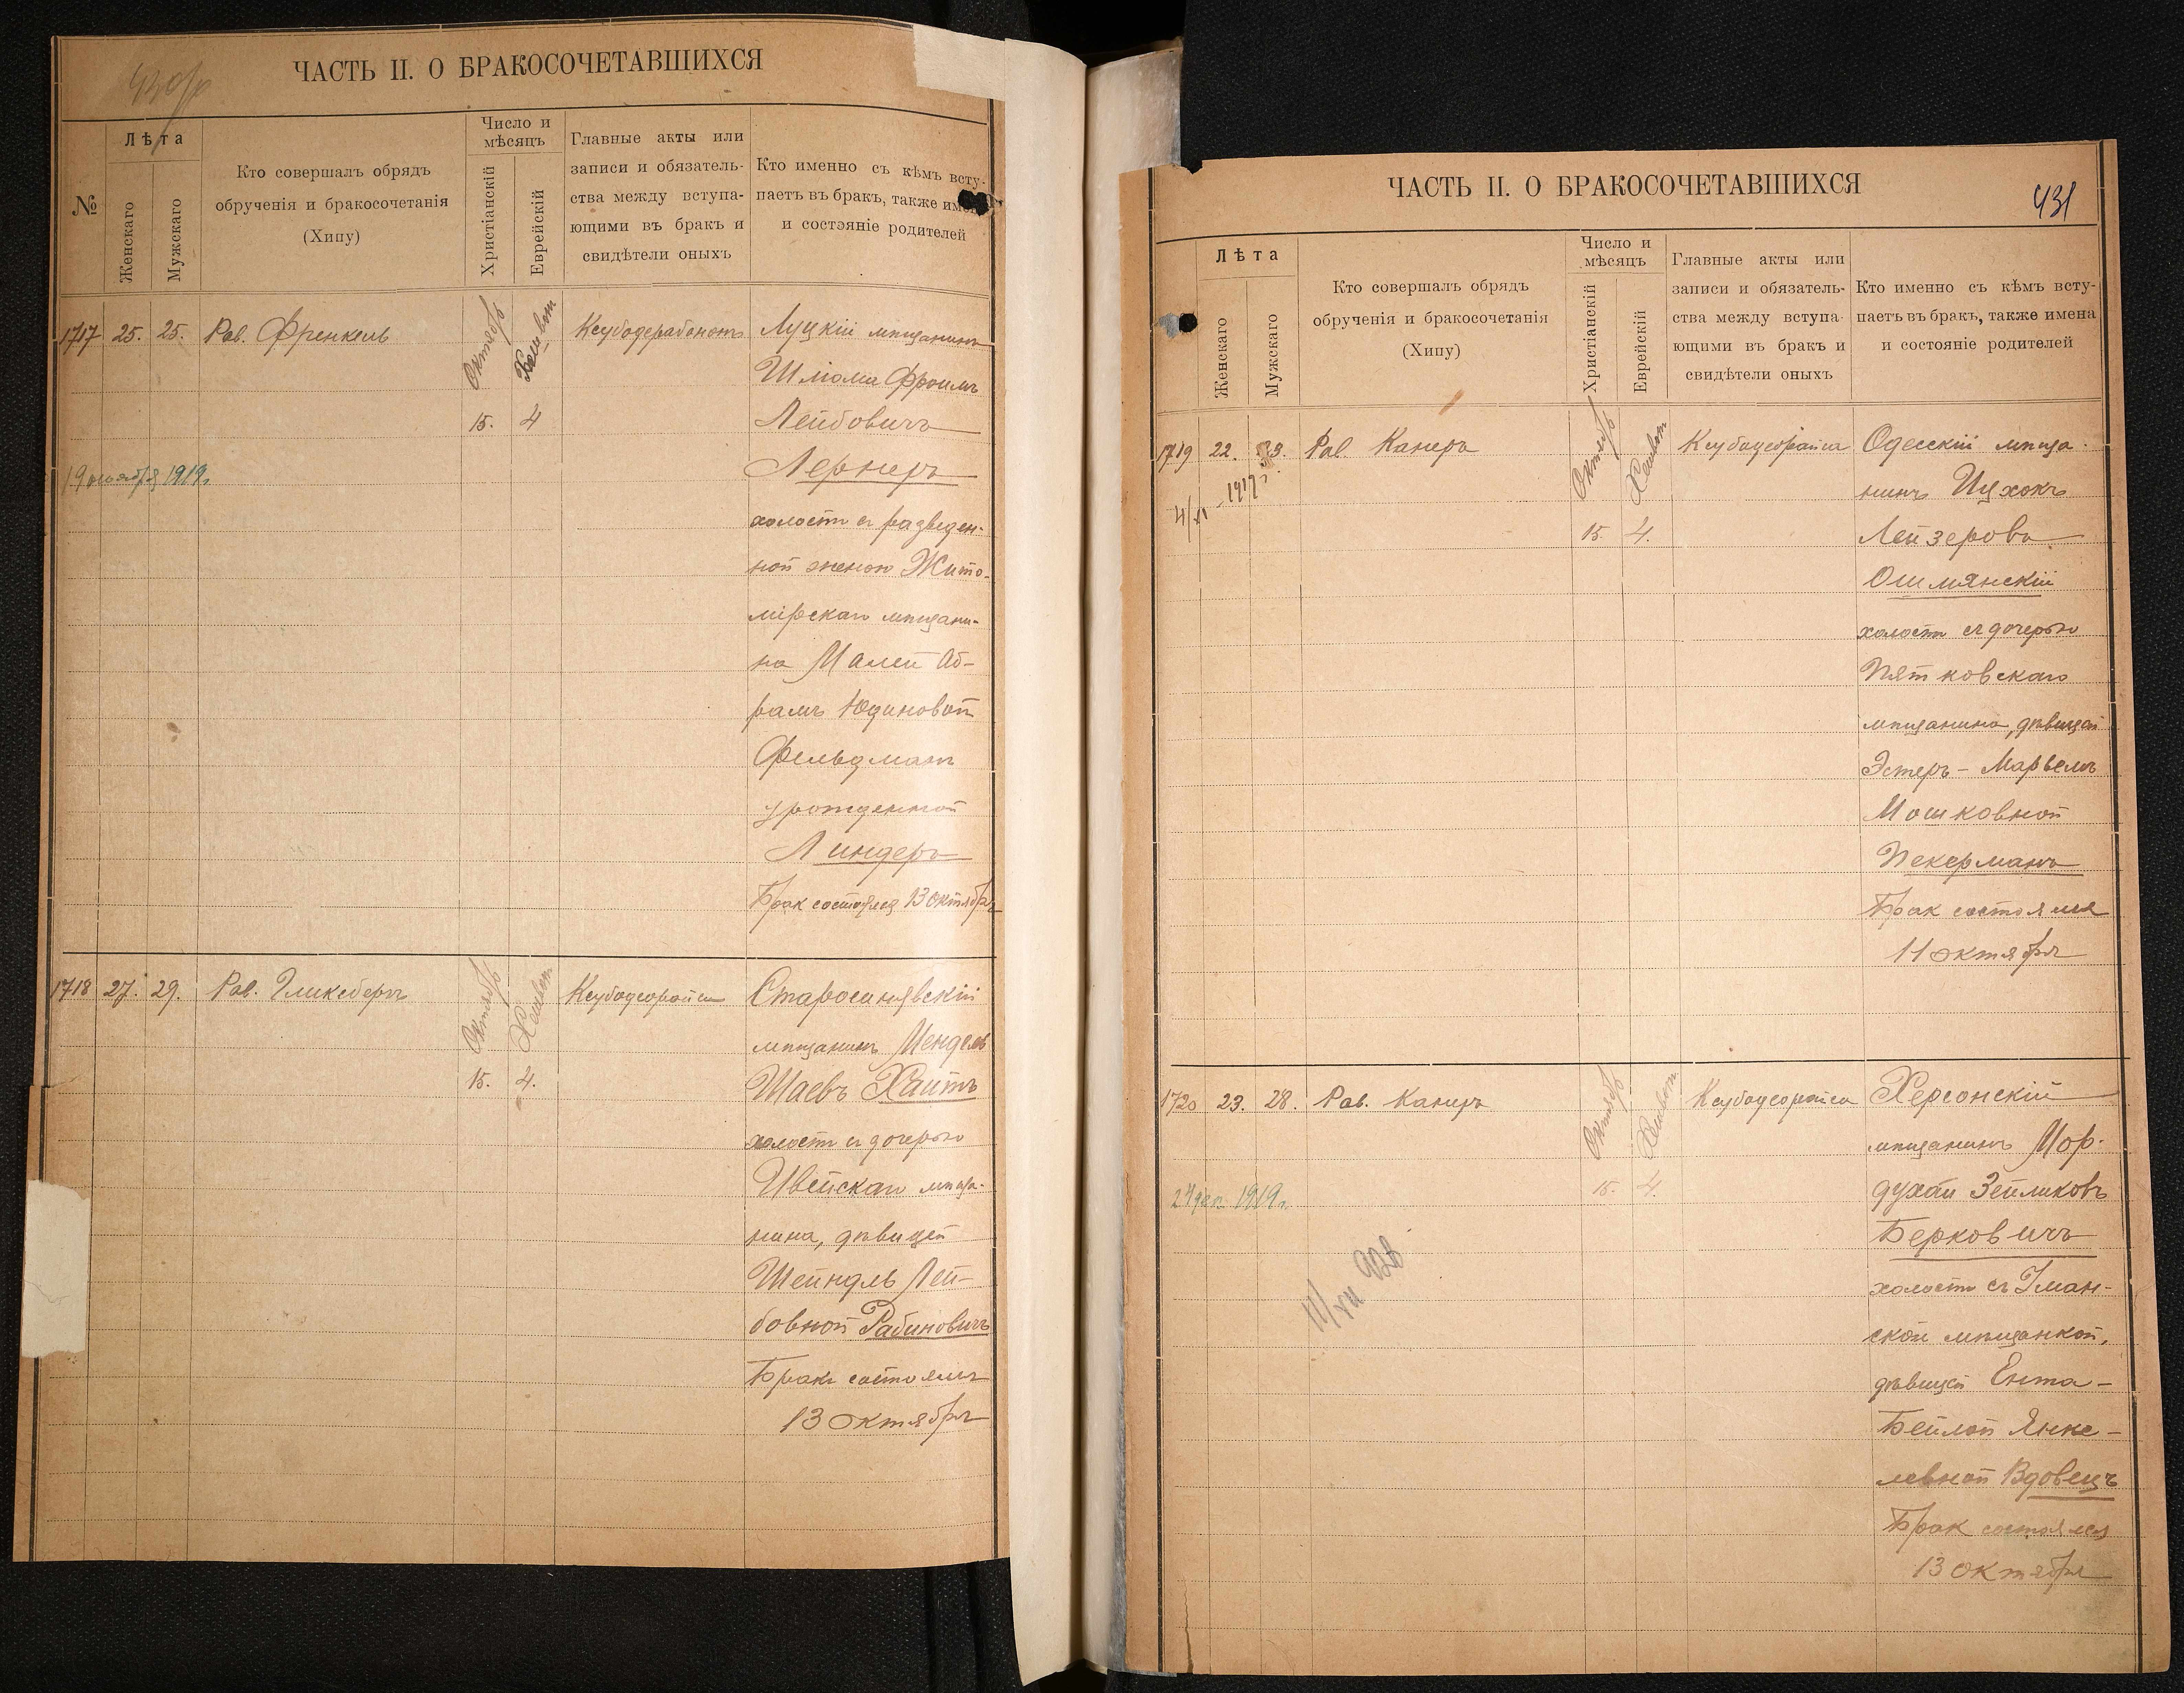 ЧАСТЬ II. О БРАКОСОЧЕТАВШИХСЯ
430об
№
Лѣта
Женскаго
Мужскаго
Кто совершалъ обрядъ
обрученія и бракосочетанія
(Хипу)
Число и
мѣсяцъ
Христіанскій
Еврейскій
Главные акты или
записи и обязатель-
ства между вступа-
ющими въ бракъ и
свидѣтели оныхъ
Кто именно съ кѣмъ всту-
паетъ въ бракъ, также имена
и состояніе родителей
1717 25. 25. Рав. Френкель
Октябрь
15.
Хешвон
4
Луцкій мѣщанинъ
Шлiома Фроимъ
Лейбовичъ
Лернеръ
холостъ съ разведен-
ной женою Жито-
мірскаго мѣщани-
на Малей Аб-
рамъ Юдиновой
Фельдманъ
урожденной
Линдеръ
Брак состоялся 13 октября
1919г.
1718 27. 29. Рав. Гликсбергъ
Октябрь
15.
Хешвон
4.
Ксубодеорайса
Старосинявскій
мѣщанинъ Мендель
Шаевъ Хаитъ
холостъ съ дочерью
Ивейскаго мѣща-
нина, дѣвицей
Шейндль Лей-
бовной Рабиновичъ
Бракъ состоялся
13 октября
ЧАСТЬ II. О БРАКОСОЧЕТАВШИХСЯ
431
Лѣта
Женскаго
Мужскаго
Кто совершалъ обрядъ
обрученія и бракосочетанія
(Хипу)
Число и
мѣсяцъ
Христіанскій
Еврейскій
Главные акты или
записи и обязатель-
ства между вступа-
ющими въ бракъ и
свидѣтели оныхъ
Кто именно съ кѣмъ всту-
паетъ въ бракъ, также имена
и состояніе родителей
1719 22. 23. Рав. Канеръ
4/XI - 1917г.
Октябрь
15.
Хешвон
4.
Ксубодеорайса
Одесскій мѣща-
нинъ Ицхокъ
Лейзеровъ
Ошмянскій
холостъ съ дочерью
Пятковскаго
мѣщанина, дѣвицей
Эстеръ-Марьемъ
Мошковной
Пекерманъ
Брак состоялся
11 октября
1720 23. 28. Рав. Канеръ
27 дек. 1919г.
11/XII 926
Октябрь
15.
Хешвон
4.
Ксубодеорайса
Херсонскій
мѣщанинъ Мор-
духай Зейликовъ
Берковичъ
холостъ съ Уман-
ской мѣщанкой,
дѣвицей Ента-
Бейлой Янке-
левной Вдовецъ
Брак состоялся
13 октября